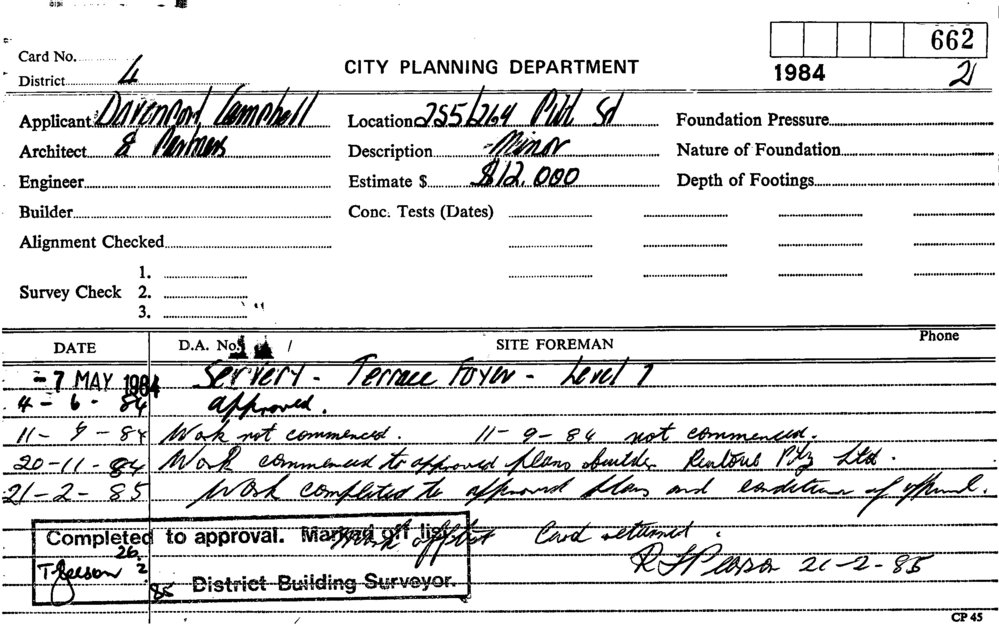 Card No.
662
District 4
CITY PLANNING DEPARTMENT
1984
2
Applicant Davenport Campbell
Location 255/264 Pitt St
Foundation Pressure
Architect & Partners
Description Minor
Nature of Foundation
Engineer
Estimate $ $12.000
Depth of Footings
Builder
Conc. Tests (Dates)
Alignment Checked
1.
Survey Check 2.
3.
DATE D.A. No. / SITE FOREMAN Phone
- 7 MAY 1984 Servery - Terrace Foyer - Level 7
4 - 6 - 84 approved.
11 - 9 - 84 Work not commenced. 11 - 9 - 84 not commenced.
20 - 11 - 84 Work commenced to approved plans builder Pty Ltd.
21 - 2 - 85 Work completed to approved plans and conditions of approval.
Completed to approval. Marked off list
Card returned.
26
2
85 District Building Surveyor.
Pearson 21-2-85
CP 45